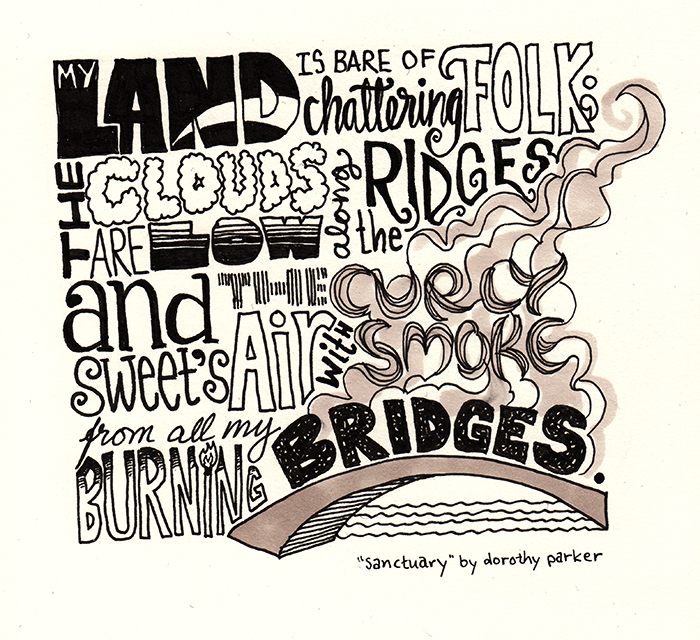 MY LAND IS BARE OF
chattering FOLK;
THE CLOUDS
ARE LOW along the RIDGES
and
sweet's THE Air with CURLY
SMOKE
from all my
BURNING BRIDGES.
"sanctuary" by dorothy parker